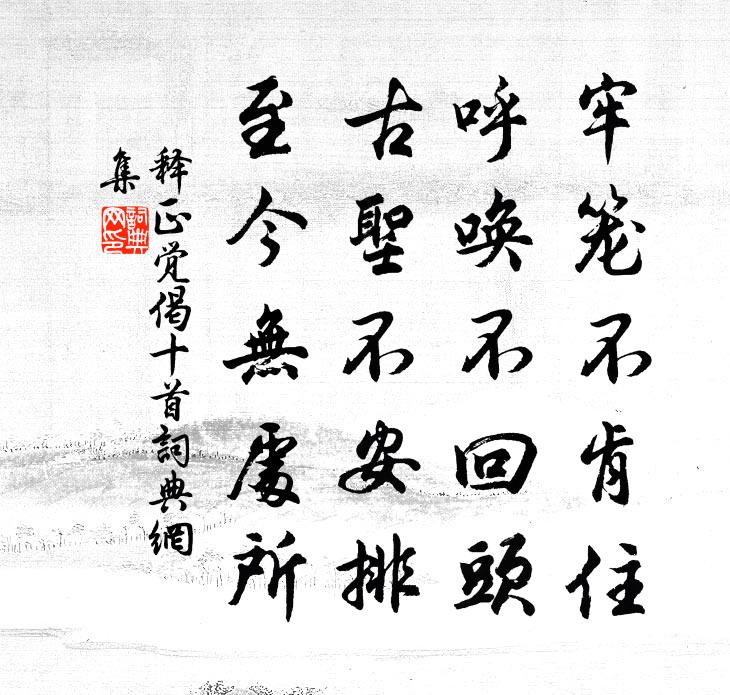 牢笼不肯住
呼唤不回頭
古聖不安排
至今無處所
释正觉偈十首詞典網
集
詞典网印